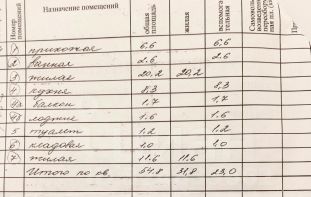 Номер помещений | Назначение помещений | общая площадь | жилая | вспомогательная
1 прихожая 6,6 6,6
2 ванная 2.6 2.6
3 жилая 20,2 20,2
4 кухня 8,3 8,3
4а балкон 1,7 1,7
лоджия 1.6 1.6
5 туалет 1.2 1.2
6 кладовая 1.0 1.0
7 жилая 11.6 11.6
Итого по кв. 54.8 31,8 23,0